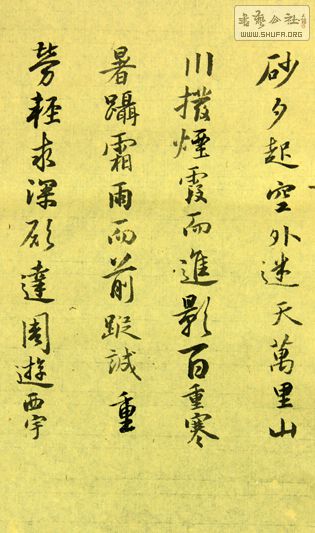 書藝公社
WWW.SHUFA.ORG
砂夕起空外迷天萬里山
川撥煙霞而進影百重寒
暑躡霜雨而前蹤誠重
勞輕求深願達周遊西宇